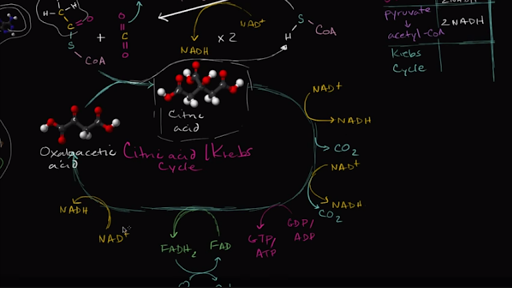 H
H
C
C
O
O
C
O
S
+
CoA
NAD+
NADH
× 2
S
CoA
H
pyruvate
↓
acetyl-CoA
2 NADH
Krebs
Cycle
Citric
acid
Oxaloacetic
acid
Citric acid / Krebs
Cycle
NAD+
NADH
CO2
NAD+
NADH
CO2
GDP/
ADP
GTP/
ATP
FAD
FADH2
NAD+
NADH